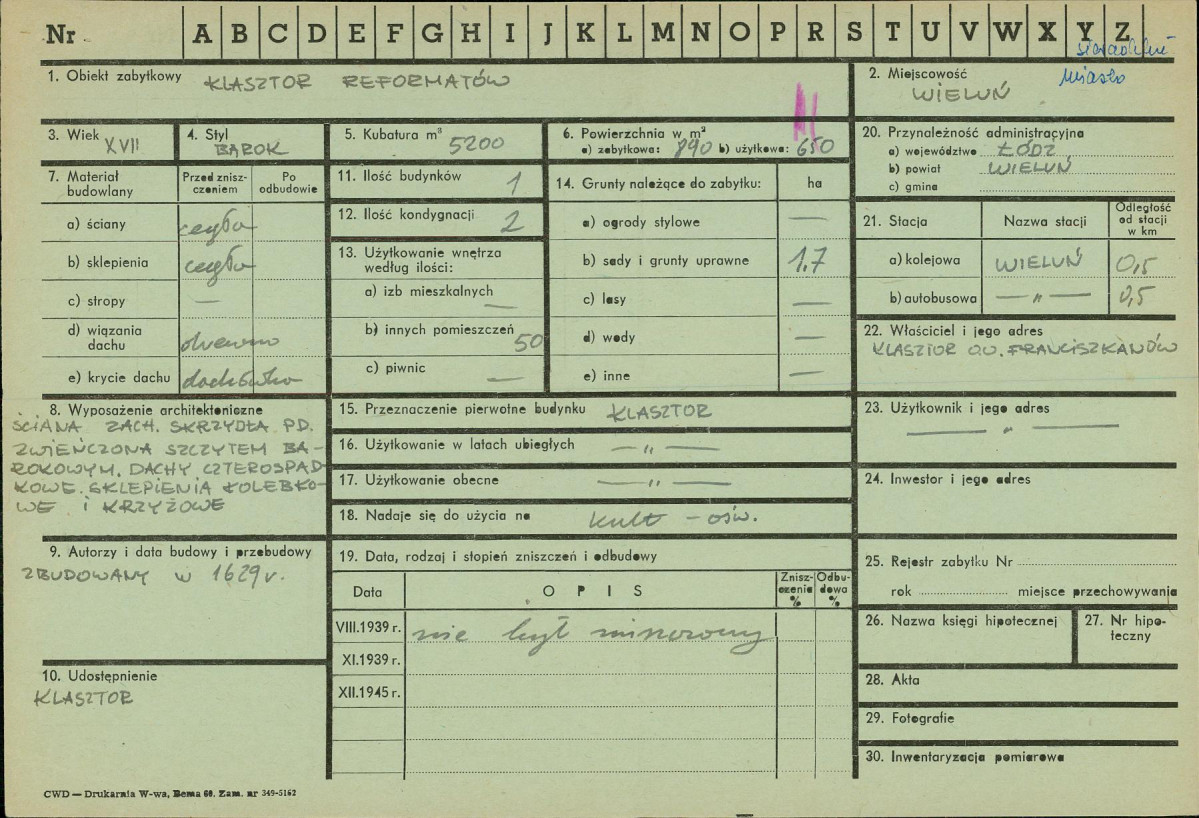 Nr A B C D E F G H I J K L M N O P R S T U V W X Y Z
1. Obiekt zabytkowy KLASZTOR REFORMATÓW
2. Miejscowość Miasto
WIELUŃ
3. Wiek XVII
4. Styl
BAROK
5. Kubatura m³ 5200
6. Powierzchnia w m²
a) zabytkowa: 890 b) użytkowa: 650
20. Przynależność administracyjna
a) województwo ŁÓDŹ
b) powiat WIELUŃ
c) gmina
7. Materiał budowlany
Przed znisz-
czeniem
Po
odbudowie
a) ściany cegła
b) sklepienia cegła
c) stropy —
d) wiązania
dachu drewno
e) krycie dachu dachówka
11. Ilość budynków 1
12. Ilość kondygnacji 2
13. Użytkowanie wnętrza
według ilości:
a) izb mieszkalnych —
b) innych pomieszczeń 50
c) piwnic —
14. Grunty należące do zabytku: ha
a) ogrody stylowe —
b) sady i grunty uprawne 1.7
c) lasy —
d) wody —
e) inne —
21. Stacja Nazwa stacji Odległość
od stacji
w km
a) kolejowa WIELUŃ 0,5
b) autobusowa — „ — 0,5
22. Właściciel i jego adres
KLASZTOR OO. FRANCISZKANÓW
8. Wyposażenie architektoniczne
ŚCIANA ZACH. SKRZYDŁA PD.
ZWIEŃCZONA SZCZYTEM BA-
ROKOWYM. DACHY CZTEROSPAD-
KOWE. SKLEPIENIA KOLEBKO-
WE I KRZYŻOWE
15. Przeznaczenie pierwotne budynku KLASZTOR
16. Użytkowanie w latach ubiegłych — „ —
17. Użytkowanie obecne — „ —
18. Nadaje się do użycia na kult – ośw.
23. Użytkownik i jego adres
— „ —
24. Inwestor i jego adres
9. Autorzy i data budowy i przebudowy
ZBUDOWANY W 1629 r.
10. Udostępnienie
KLASZTOR
19. Data, rodzaj i stopień zniszczeń i odbudowy
Data OPIS Znisz-
czenia
% Odbu-
dowa
%
VIII.1939 r. nie był niszczony
XI.1939 r.
XII.1945 r.
25. Rejestr zabytku Nr
rok miejsce przechowywania
26. Nazwa księgi hipotecznej
27. Nr hipo-
teczny
28. Akta
29. Fotografie
30. Inwentaryzacja pomiarowa
CWD — Drukarnia W-wa, Bema 60. Zam. nr 349-5162